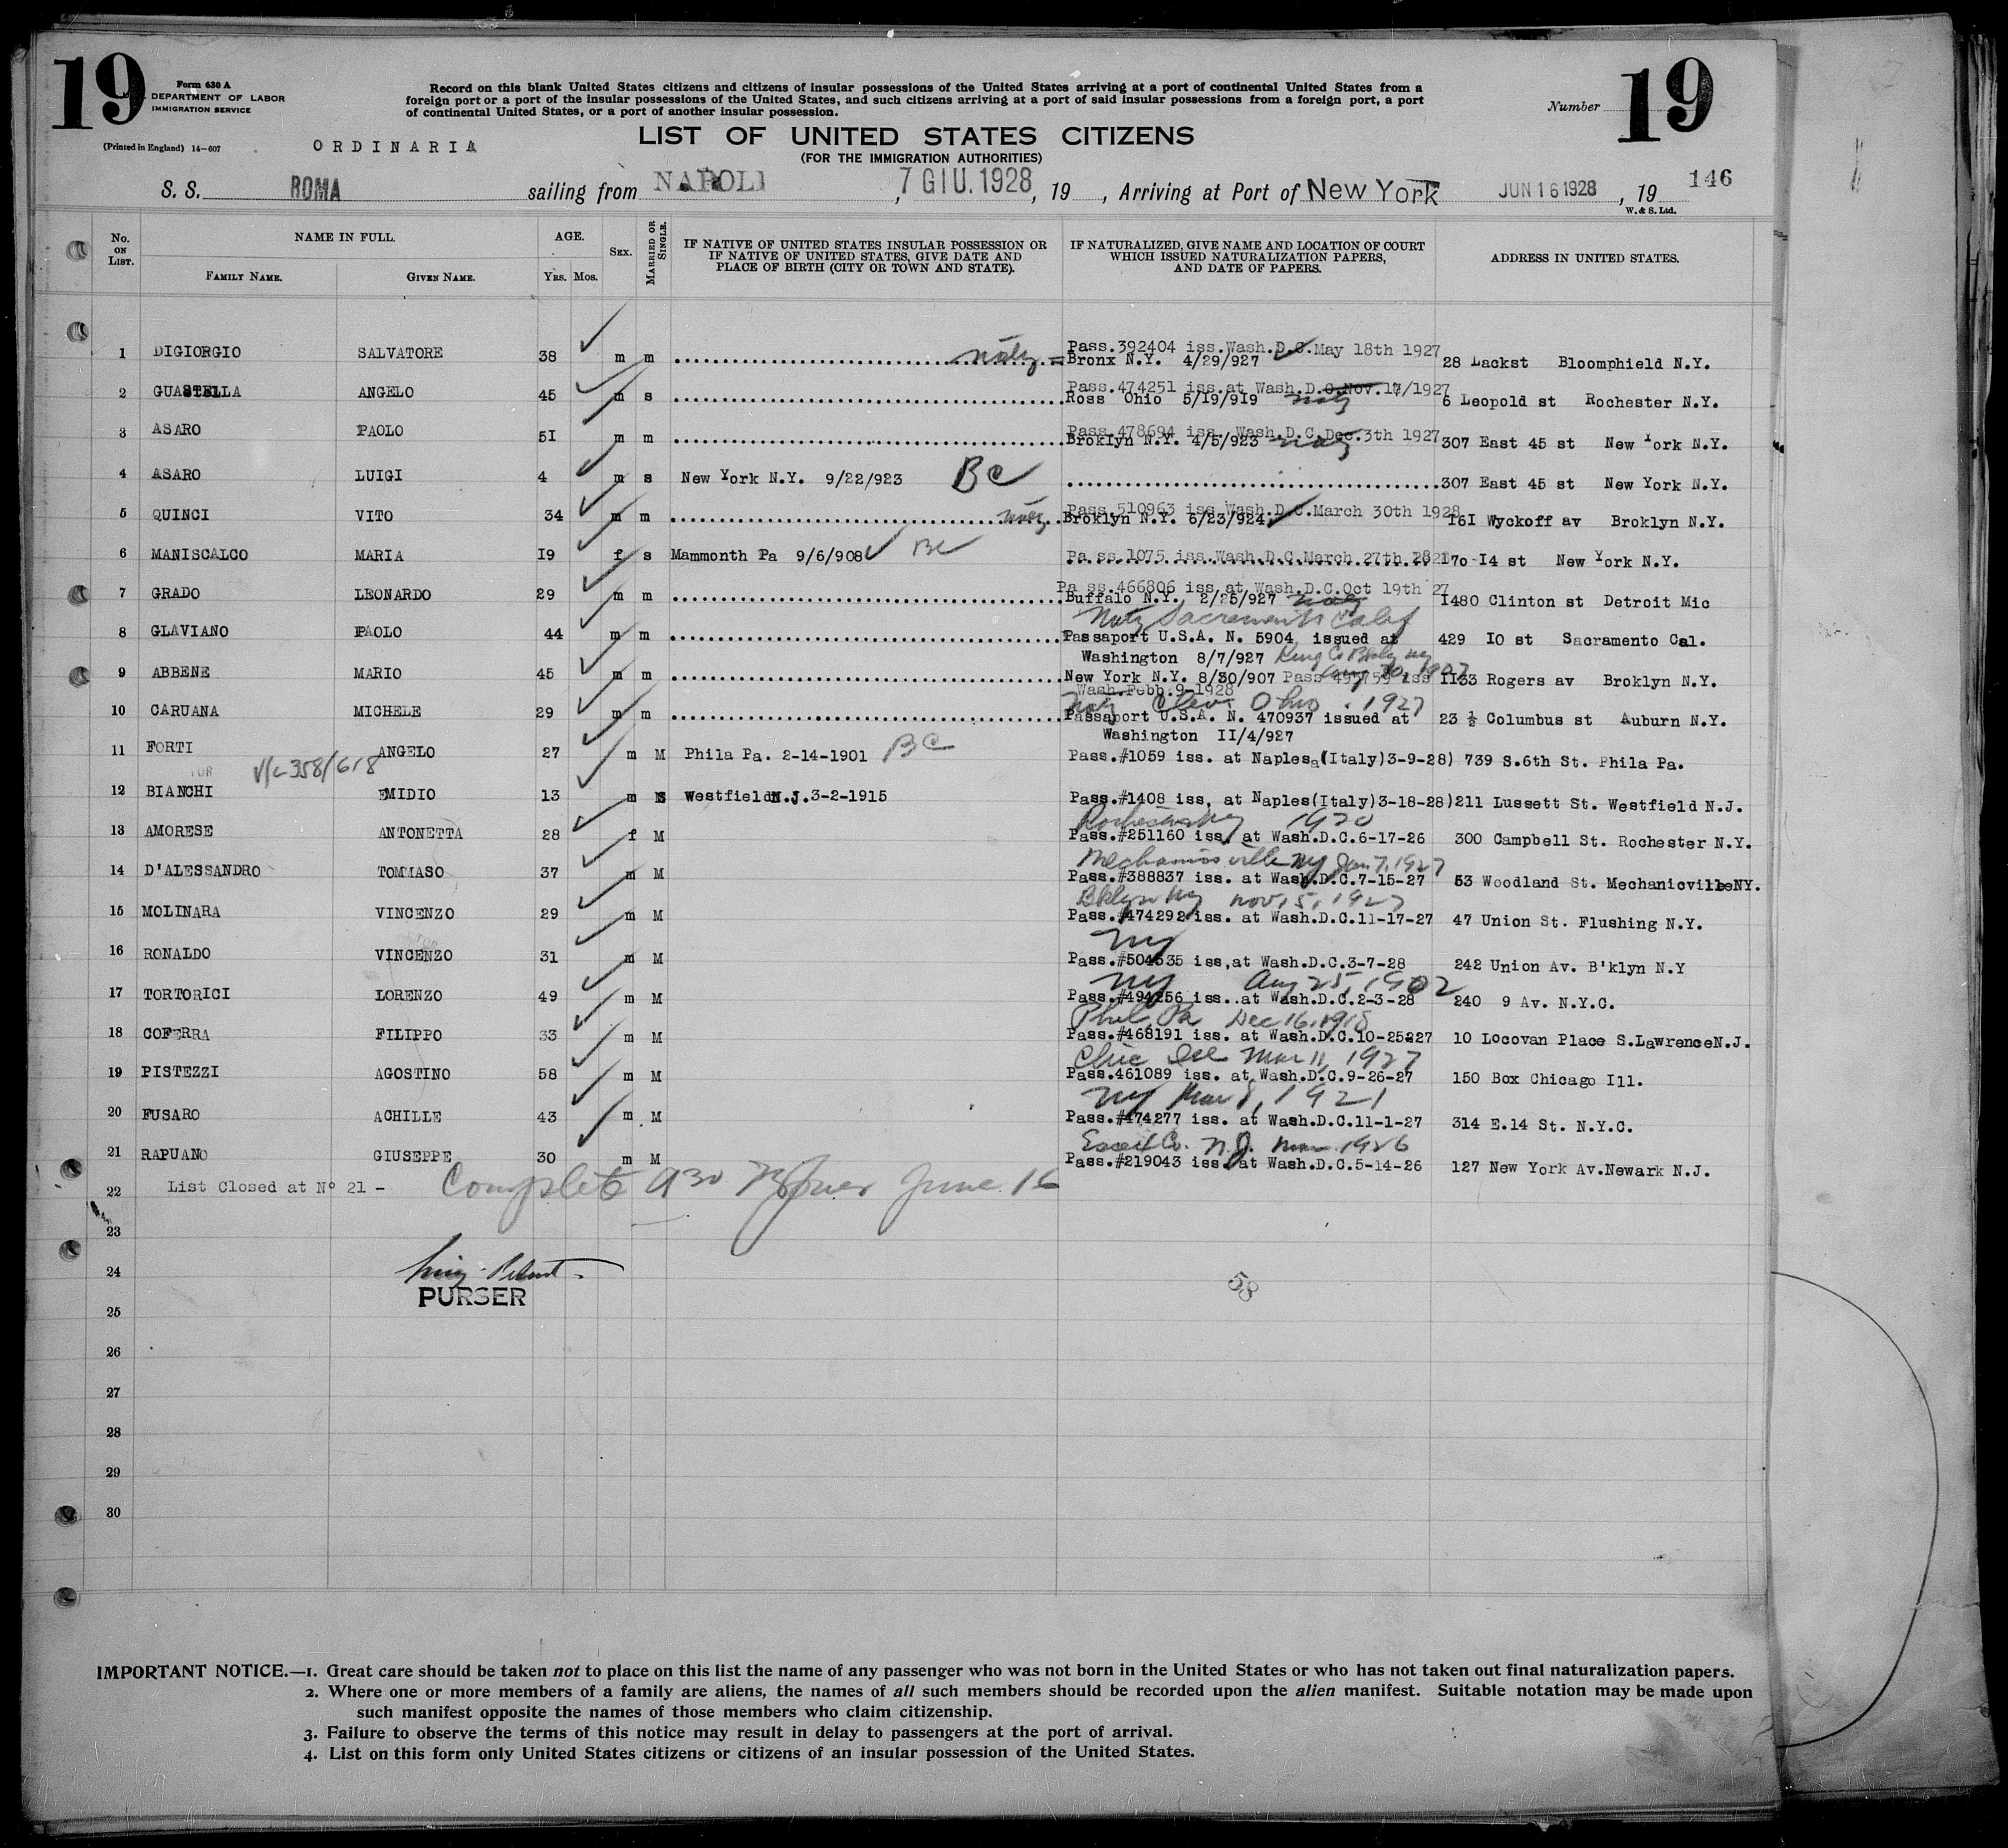 19
Form 630 A
DEPARTMENT OF LABOR
IMMIGRATION SERVICE
(Printed in England) 14—607
Record on this blank United States citizens and citizens of insular possessions of the United States arriving at a port of continental United States from a
foreign port or a port of the insular possessions of the United States, and such citizens arriving at a port of said insular possessions from a foreign port, a port
of continental United States, or a port of another insular possession.
Number 19
ORDINARIA
LIST OF UNITED STATES CITIZENS
(FOR THE IMMIGRATION AUTHORITIES)
S. S. ROMA sailing from NAPOLI, 7 GIU. 1928, 19 , Arriving at Port of New York JUN 16 1928, 19 146
W. & S. Ltd.
No. ON LIST. NAME IN FULL. AGE. SEX. MARRIED OR SINGLE. IF NATIVE OF UNITED STATES INSULAR POSSESSION OR IF NATIVE OF UNITED STATES, GIVE DATE AND PLACE OF BIRTH (CITY OR TOWN AND STATE). IF NATURALIZED, GIVE NAME AND LOCATION OF COURT WHICH ISSUED NATURALIZATION PAPERS, AND DATE OF PAPERS. ADDRESS IN UNITED STATES.
FAMILY NAME. GIVEN NAME. YRS. MOS.
Pass.392404 iss.Wash.D.C.May 18th 1927
1 DIGIORGIO SALVATORE 38 m m natz = Bronx N.Y. 4/29/927 28 Lackst Bloomphield N.Y.
Pass.474251 iss.at Wash.D.C.Nov.17/1927
2 GUASTELLA ANGELO 45 m s Ross Ohio 5/19/919 natz 6 Leopold st Rochester N.Y.
Pass.478694 iss. Wash.D.C.Dec.3th 1927
3 ASARO PAOLO 5I m m Broklyn N.Y. 4/5/923 natz 307 East 45 st New York N.Y.
4 ASARO LUIGI 4 m s New York N.Y. 9/22/923 BC 307 East 45 st New York N.Y.
Pass.510963 iss.Wash.D.C.March 30th 1928
5 QUINCI VITO 34 m m natz Broklyn N.Y. 6/23/924 I6I Wyckoff av Broklyn N.Y.
6 MANISCALCO MARIA I9 f s Mammonth Pa 9/6/908 BC Pa ss.1075 iss.Wash.D.C.March.27th.28 I70-I4 st New York N.Y.
Pa ss.466806 iss.at Wash.D.C.Oct 19th 27
7 GRADO LEONARDO 29 m m Buffalo N.Y. 2/25/927 natz I480 Clinton st Detroit Mic
Natz Sacramento Calif
8 GLAVIANO PAOLO 44 m m Passaport U.S.A. N. 5904 issued at 429 IO st Sacramento Cal.
Washington 8/7/927 King Co Bkly NY
Aug 30, 1907
9 ABBENE MARIO 45 m m New York N.Y. 8/30/907 Pass iss II33 Rogers av Broklyn N.Y.
Wash.Febb.9-1928
Natz Clev. Ohio. 1927
10 CARUANA MICHELE 29 m m Passaport U.S.A. N. 470937 issued at 23 ½ Columbus st Auburn N.Y.
Washington II/4/927
11 FORTI ANGELO 27 m M Phila Pa. 2-14-1901 BC Pass.#1059 iss. at Naples(Italy)3-9-28) 739 S.6th St. Phila Pa.
V/L 358/618
12 BIANCHI EMIDIO 13 m S Westfield N.J. 3-2-1915 Pass.#1408 iss, at Naples(Italy)3-18-28) 211 Lussett St. Westfield N.J.
Rochester NY 1920
13 AMORESE ANTONETTA 28 f M Pass.#251160 iss. at Wash.D.C.6-17-26 300 Campbell St. Rochester N.Y.
Mechanicsville NY Jan 7, 1927
14 D'ALESSANDRO TOMMASO 37 m M Pass.#388837 iss. at Wash.D.C.7-15-27 53 Woodland St. MechanicvilleNY.
Bklyn NY Nov, 5, 1927
15 MOLINARA VINCENZO 29 m M Pass.#474292 iss. at Wash.D.C.11-17-27 47 Union St. Flushing N.Y.
NY
16 RONALDO VINCENZO 31 m M Pass.#504535 iss,at Wash.D.C.3-7-28 242 Union Av. B'klyn N.Y
NY Aug 25, 1902
17 TORTORICI LORENZO 49 m M Pass.#494256 iss..at Wash.D.C.2-3-28 240 9 Av. N.Y.C.
Phil. Pa Dec 16, 1918
18 COFERRA FILIPPO 33 m M Pass.#468191 iss. at Wash.D.C.10-25-27 10 Locovan Place S.LawrenceN.J.
Chic Ill Mar 11, 1927
19 PISTEZZI AGOSTINO 58 m M Pass.461089 iss. at Wash.D.C.9-26-27 150 Box Chicago Ill.
NY Mar 8, 1921
20 FUSARO ACHILLE 43 m M Pass.#474277 iss. at Wash.D.C.11-1-27 314 E.14 St. N.Y.C.
Essex Co. N.J. Mar 1926
21 RAPUANO GIUSEPPE 30 m M Pass.#219043 iss. at Wash.D.C.5-14-26 127 New York Av.Newark N.J.
22 List Closed at Nº 21 - Complete 9 30 June 16
23
24
PURSER
58
25
26
27
28
29
30
IMPORTANT NOTICE.—1. Great care should be taken not to place on this list the name of any passenger who was not born in the United States or who has not taken out final naturalization papers.
2. Where one or more members of a family are aliens, the names of all such members should be recorded upon the alien manifest. Suitable notation may be made upon
such manifest opposite the names of those members who claim citizenship.
3. Failure to observe the terms of this notice may result in delay to passengers at the port of arrival.
4. List on this form only United States citizens or citizens of an insular possession of the United States.